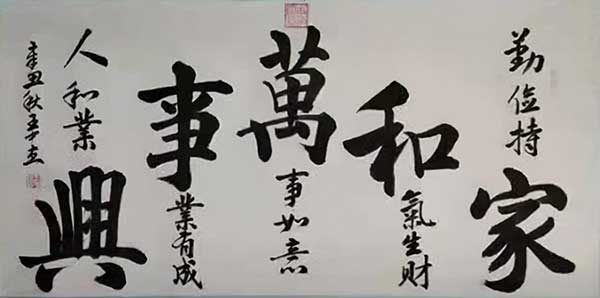 勤俭持家
和氣生财
萬事如意
事業有成
人和業興
辛丑秋